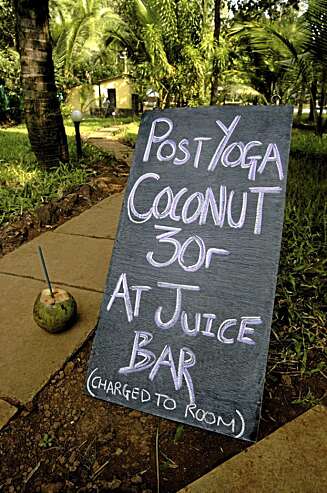 Post Yoga
Coconut
30r
At Juice
Bar
(Charged to Room)